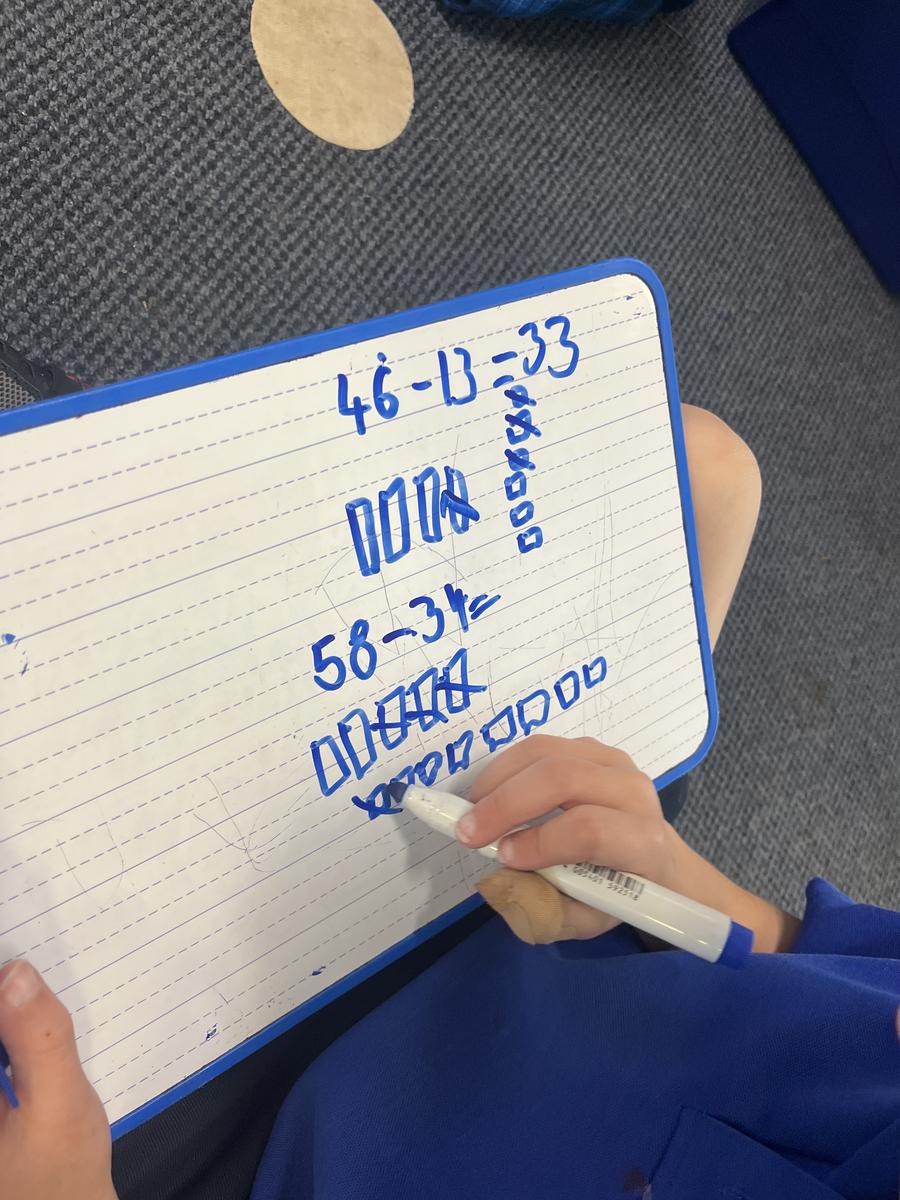 46-13=33
58-34=